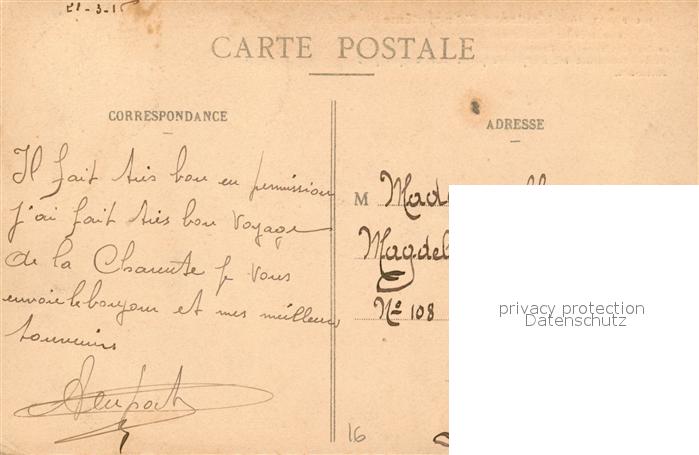 CARTE POSTALE
CORRESPONDANCE
ADRESSE
Il fait très bon en permission
j'ai fait très bon voyage
de la Charente je vous
envoie le bonjour et mes meilleurs
souvenirs
M Mad
Magdel
No 108
privacy protection
Datenschutz
16